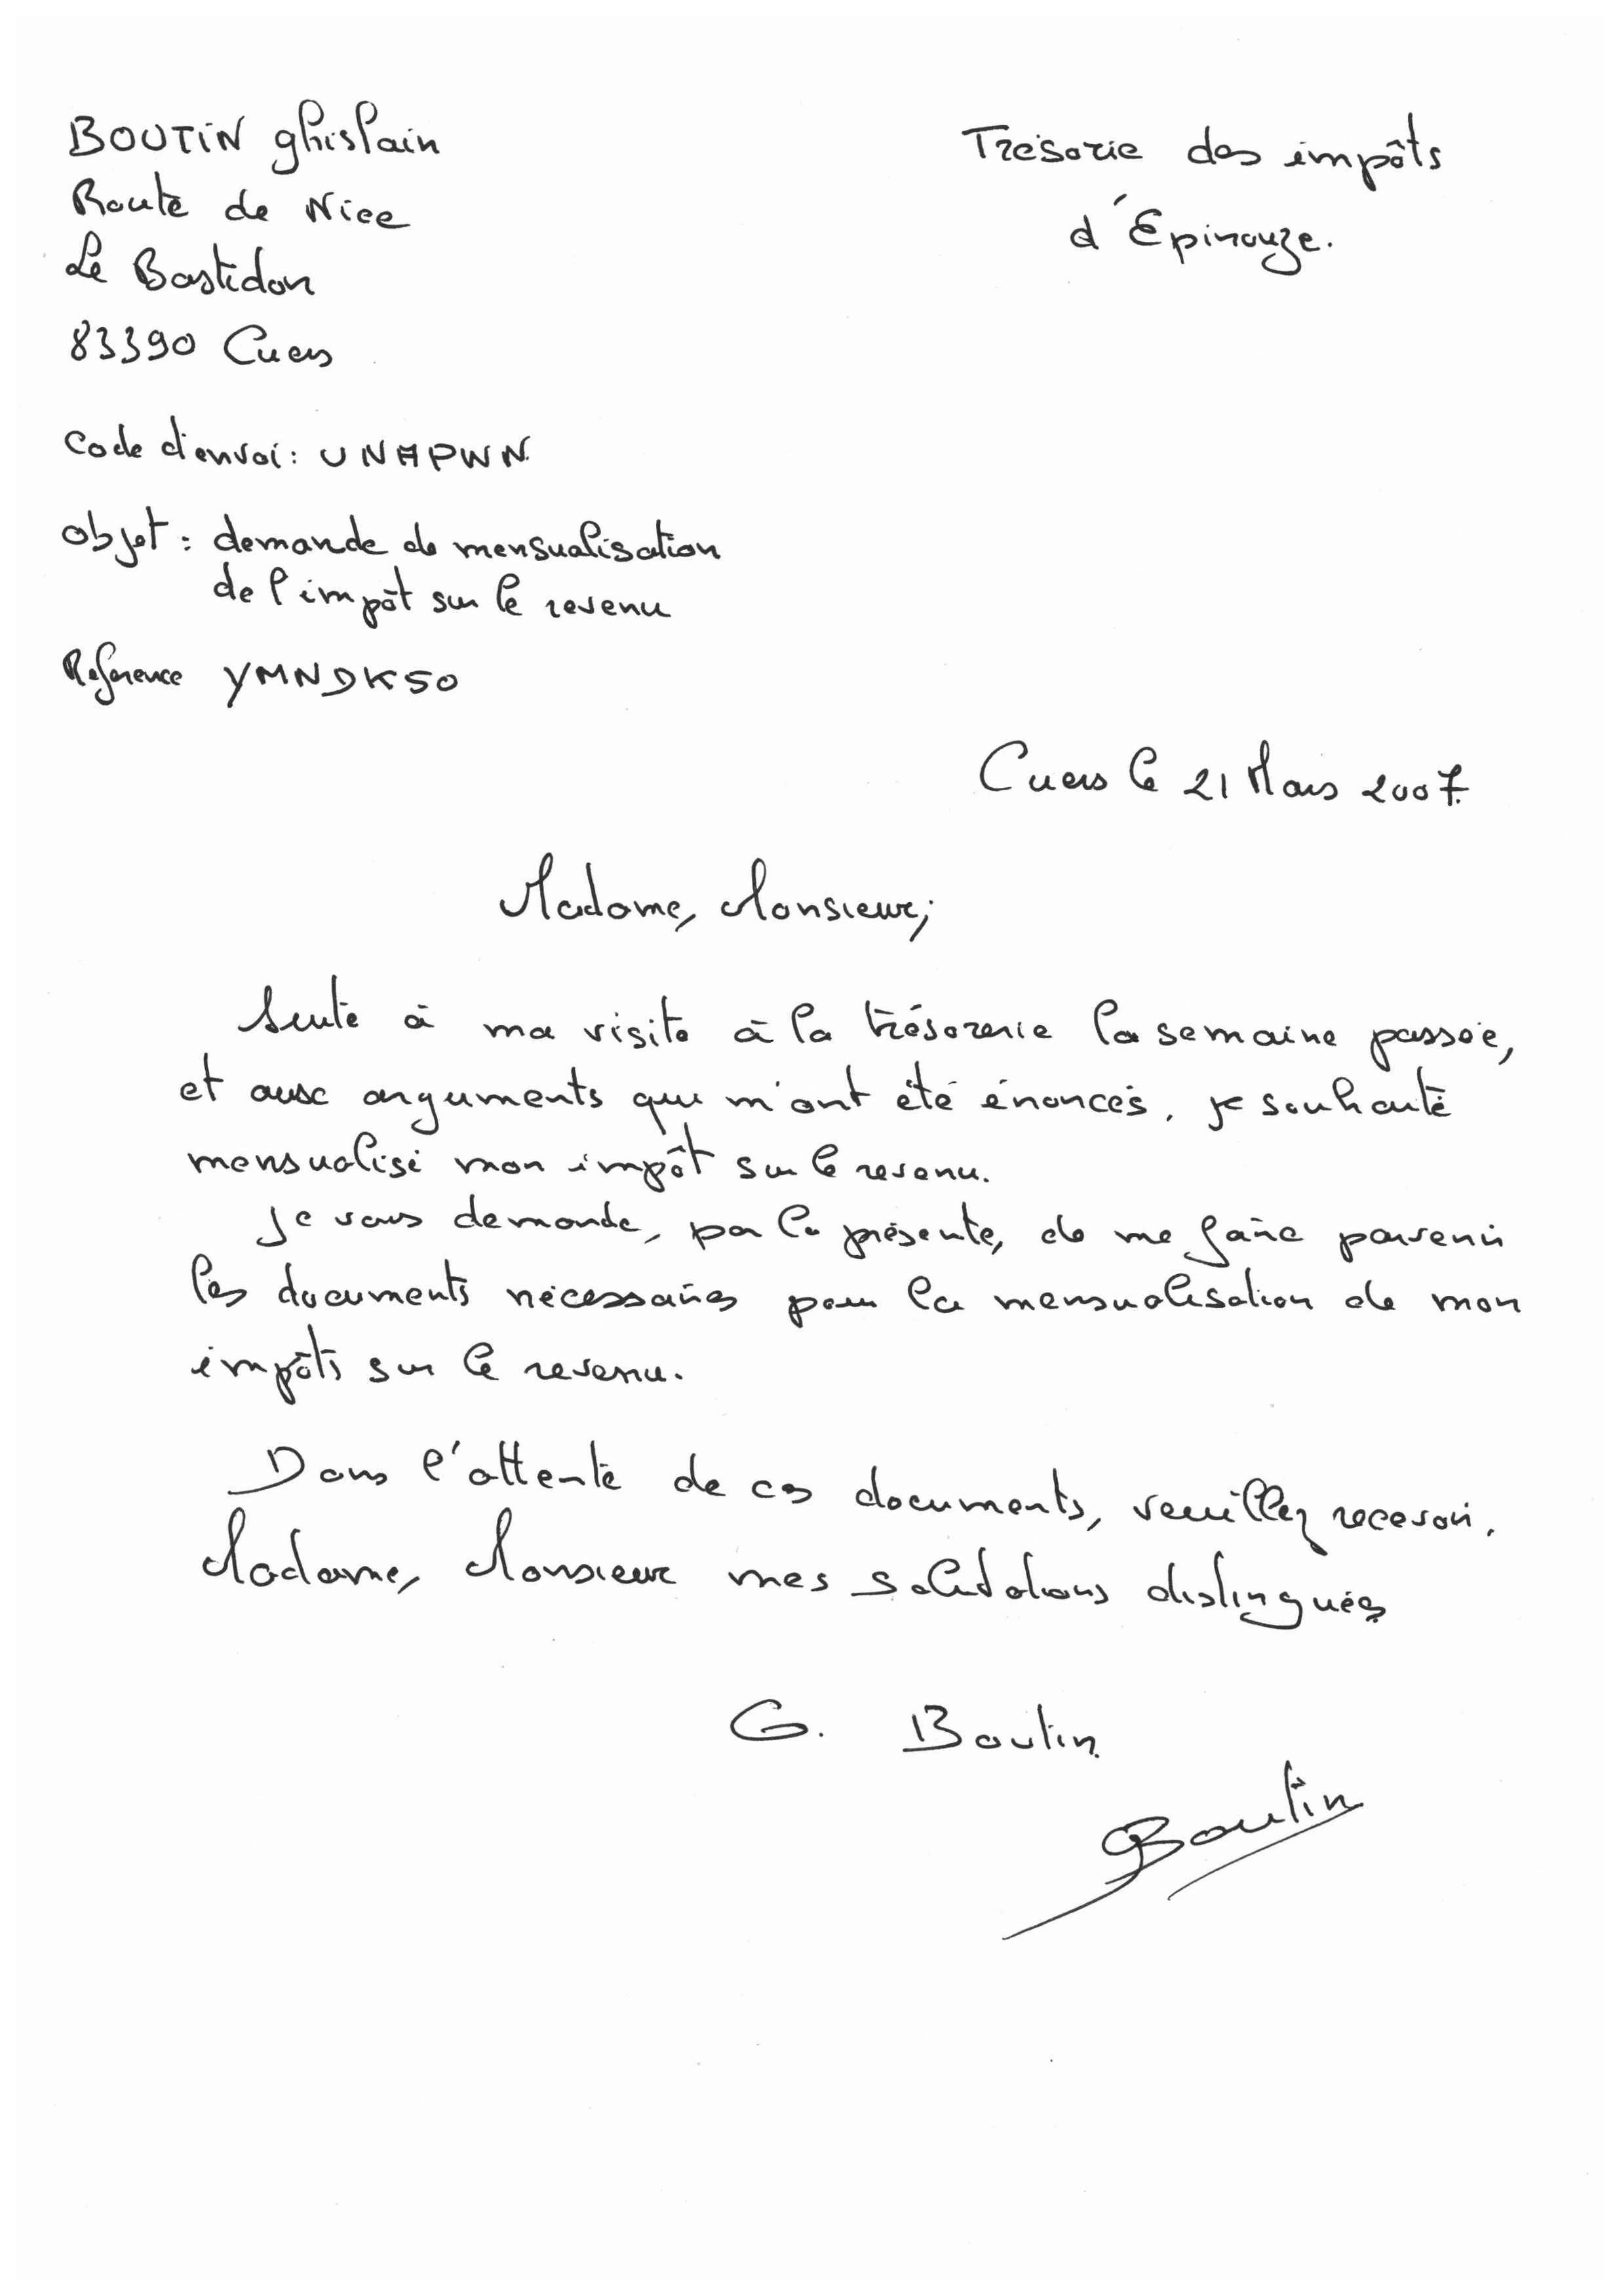 BOUTIN ghislain
Route de Nice
Le Bastidon
83390 Cuers
Trésorie des impôts
d'Epinouze.
Code d'envoi : UNAPWN
Objet : demande de mensualisation
de l'impôt sur le revenu
Référence YMNDK50
Cuers le 21 Mars 2007.
Madame, Monsieur,
Suite à ma visite à la trésorerie la semaine passée,
et aux arguments qui m'ont été énoncés, je souhaite
mensualisé mon impôt sur le revenu.
Je vous demande, par la présente, de me faire parvenir
les documents nécessaires pour la mensualisation de mon
impôts sur le revenu.
Dans l'attente de ces documents, veuillez recevoir,
Madame, Monsieur mes salutations distinguées
G. Boutin
Boutin